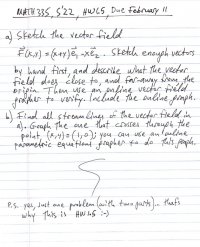 MATH 335, S'22, HW65, Due February 11
a) Sketch the vector field
F(x,y) = (x+y)e₁ - xe₂. Sketch enough vectors
by hand first, and describe what the vector
field does close to, and far-away from, the
origin. Then use an online vector field
grapher to verify. Include the online graph.
b) Find all streamlines of the vector field in
a). Graph the one that crosses through the
point (x,y) = (1,0); you can use an online
parametric equations grapher to do this graph.
P.S. yes, just one problem (with two parts)... that's
why this is HW65 :-)